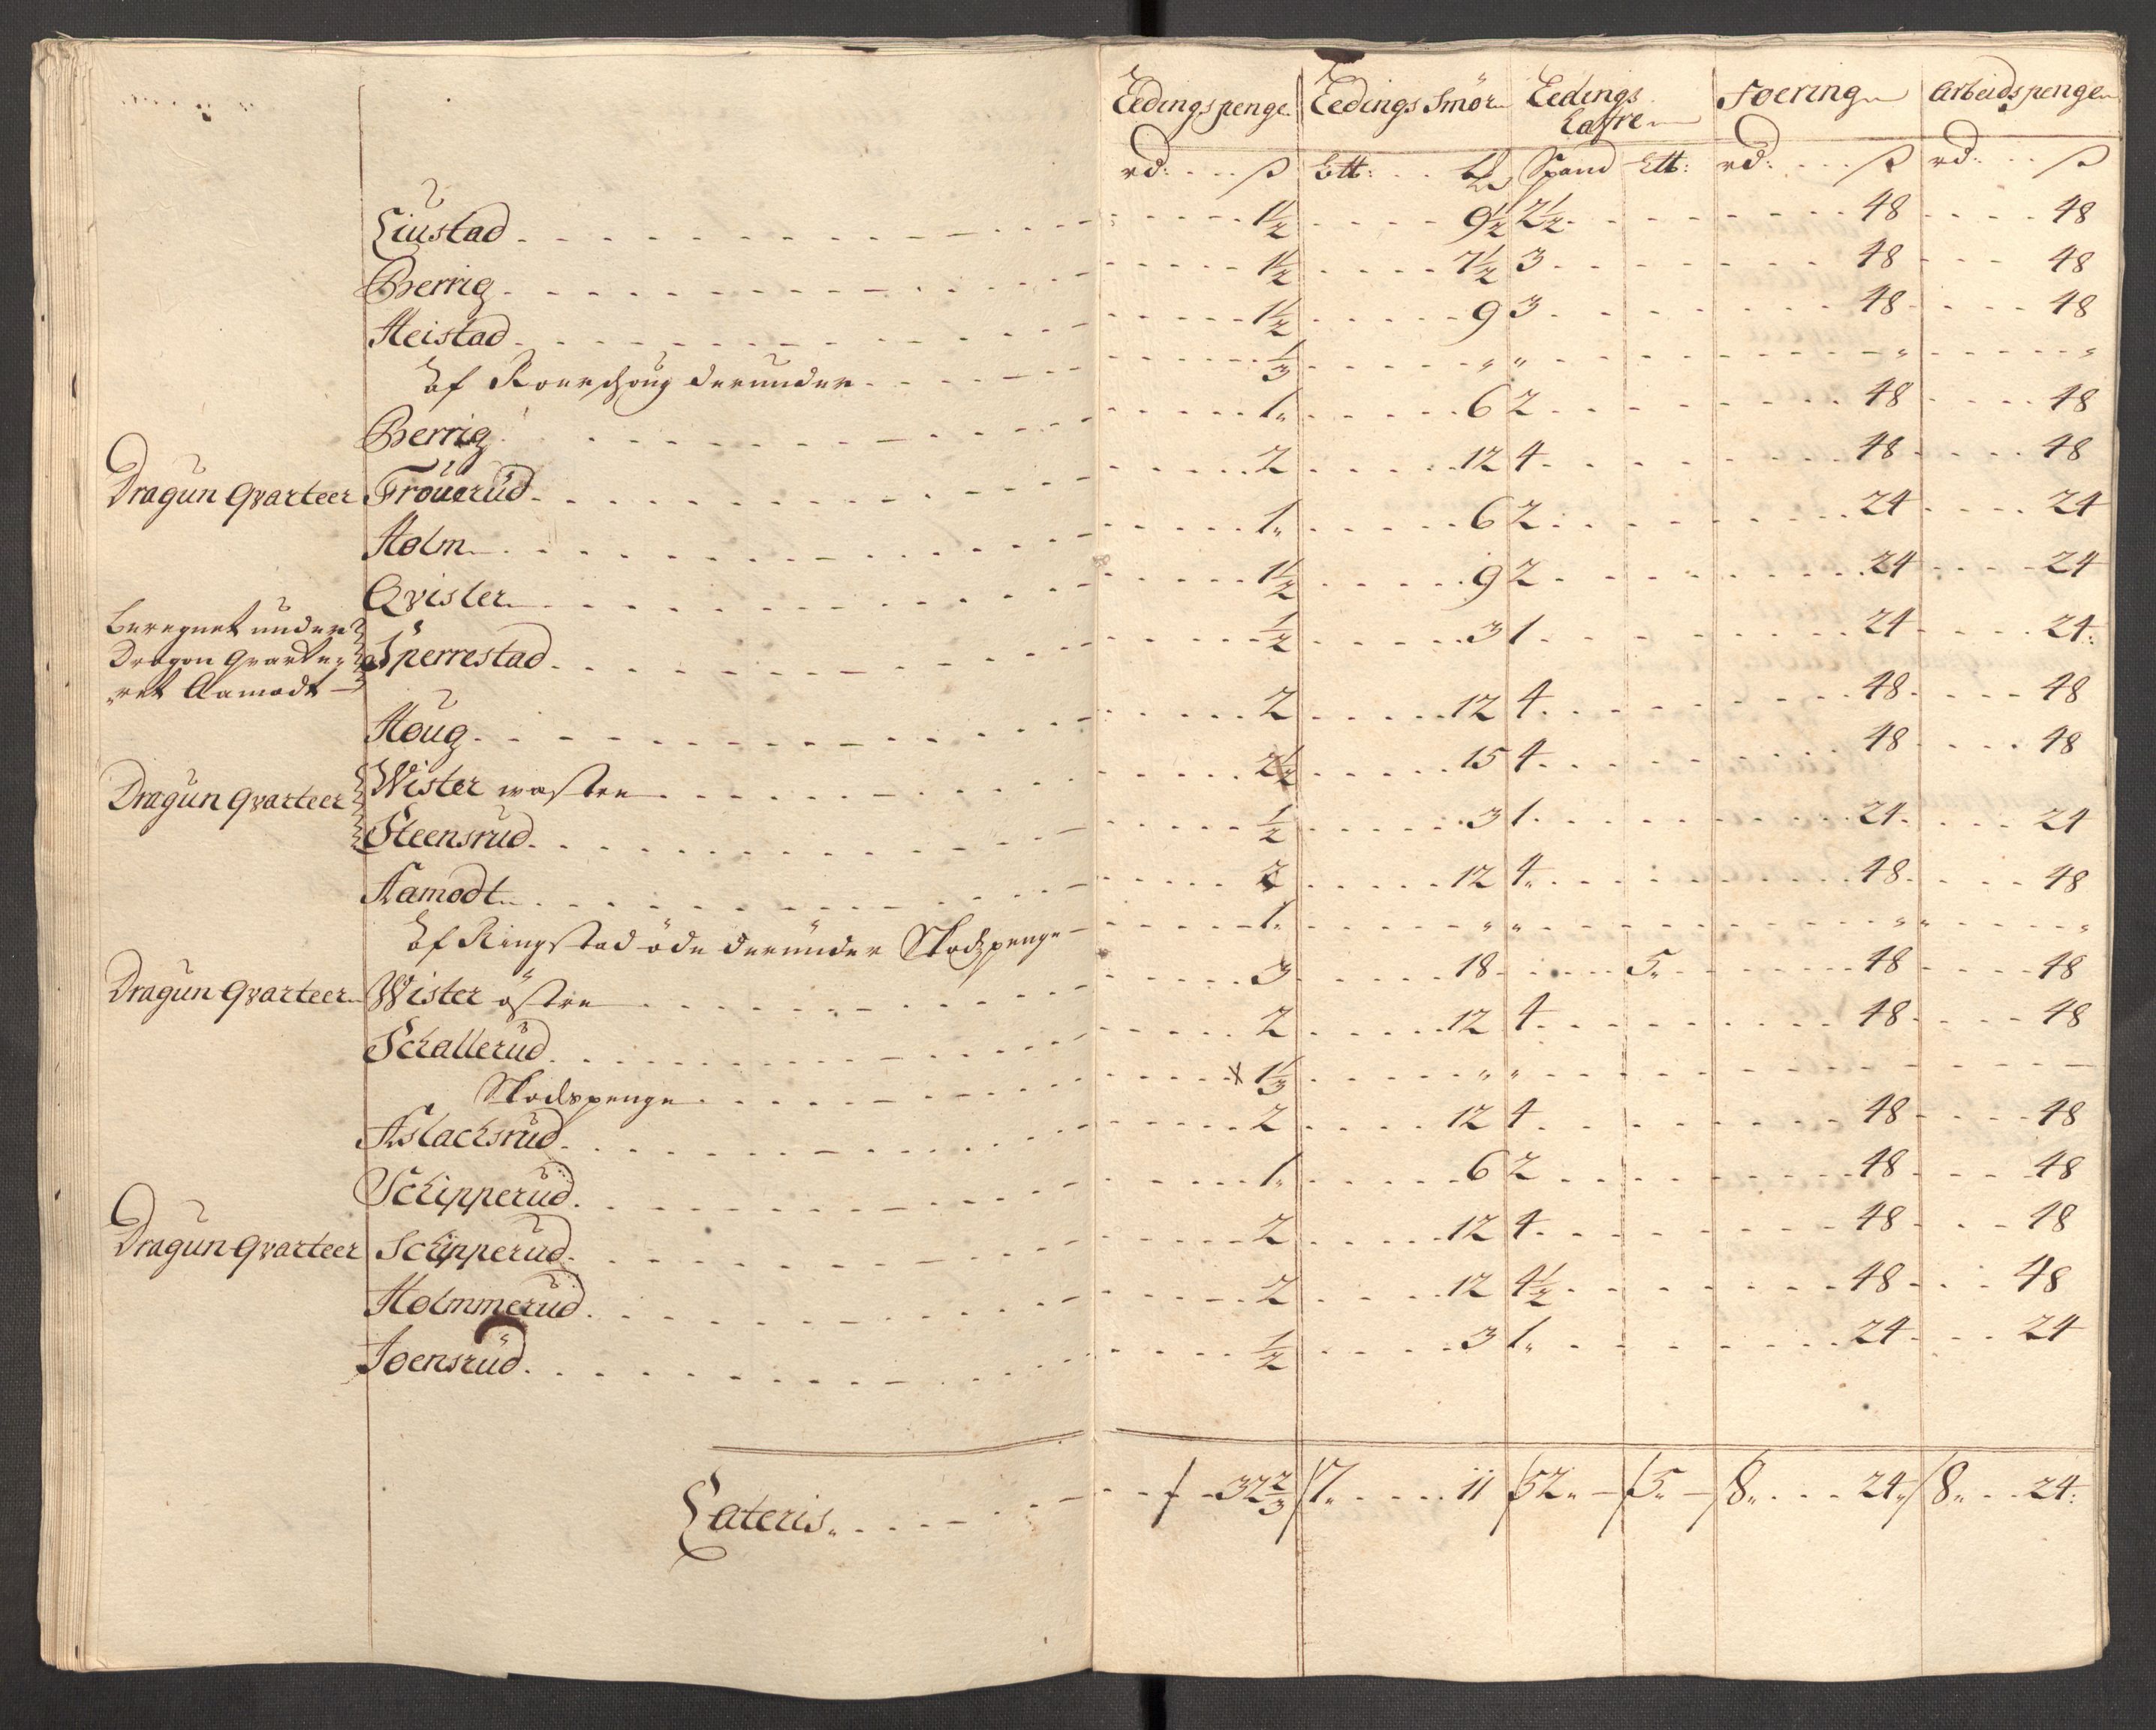 Ledingspenge Ledings Smör Ledings Foering Arbeidspenge
Kaffre
rd: ß Ltt: Spand Ltt: rd: ß rd: ß
Liustad 1½ 9½ 2½ 48 48
Berrig 1½ 7½ 3 48 48
Heistad 1½ 9 3 48 48
af Roerschoug derunder ⅓ " " " "
Berrig 1" 6 2 48 48
Dragun Qvarteer Fröuerud 2 12 4 48 48
Holm 1" 6 2 24 24
Qvisler 1½ 9 2 24 24
Beregnet under
Dragon Qvarte= Sperrestad ½ 3 1 24 24:
ret Aamodt
Houg 2 12 4 48 48
Dragun Qvarteer Wister wastre 2½ 15 4 48 48
Steensrud ½ 3 1 24 24
Aamodt 2 12 4" 48 48
af Ringstad öde derunder Skodspenge 1" " " " " "
Dragun Qvarteer Wister östre 3 18 5" 48 48
Schallerud 2 12 4 48 48
Skodspenge x 1⅓ " "
Aslachsrud 2 12 4 48 48
Schipperud 1" 6 2 48 48
Dragun Qvarteer Schipperud 2 12 4 48 48
Holmmerud 2 12 4½ 48 48
Joensrud ½ 3 1" 24 24
Lateris 32⅔ 7" 11 52" 5" 8" 24" 8" 24: